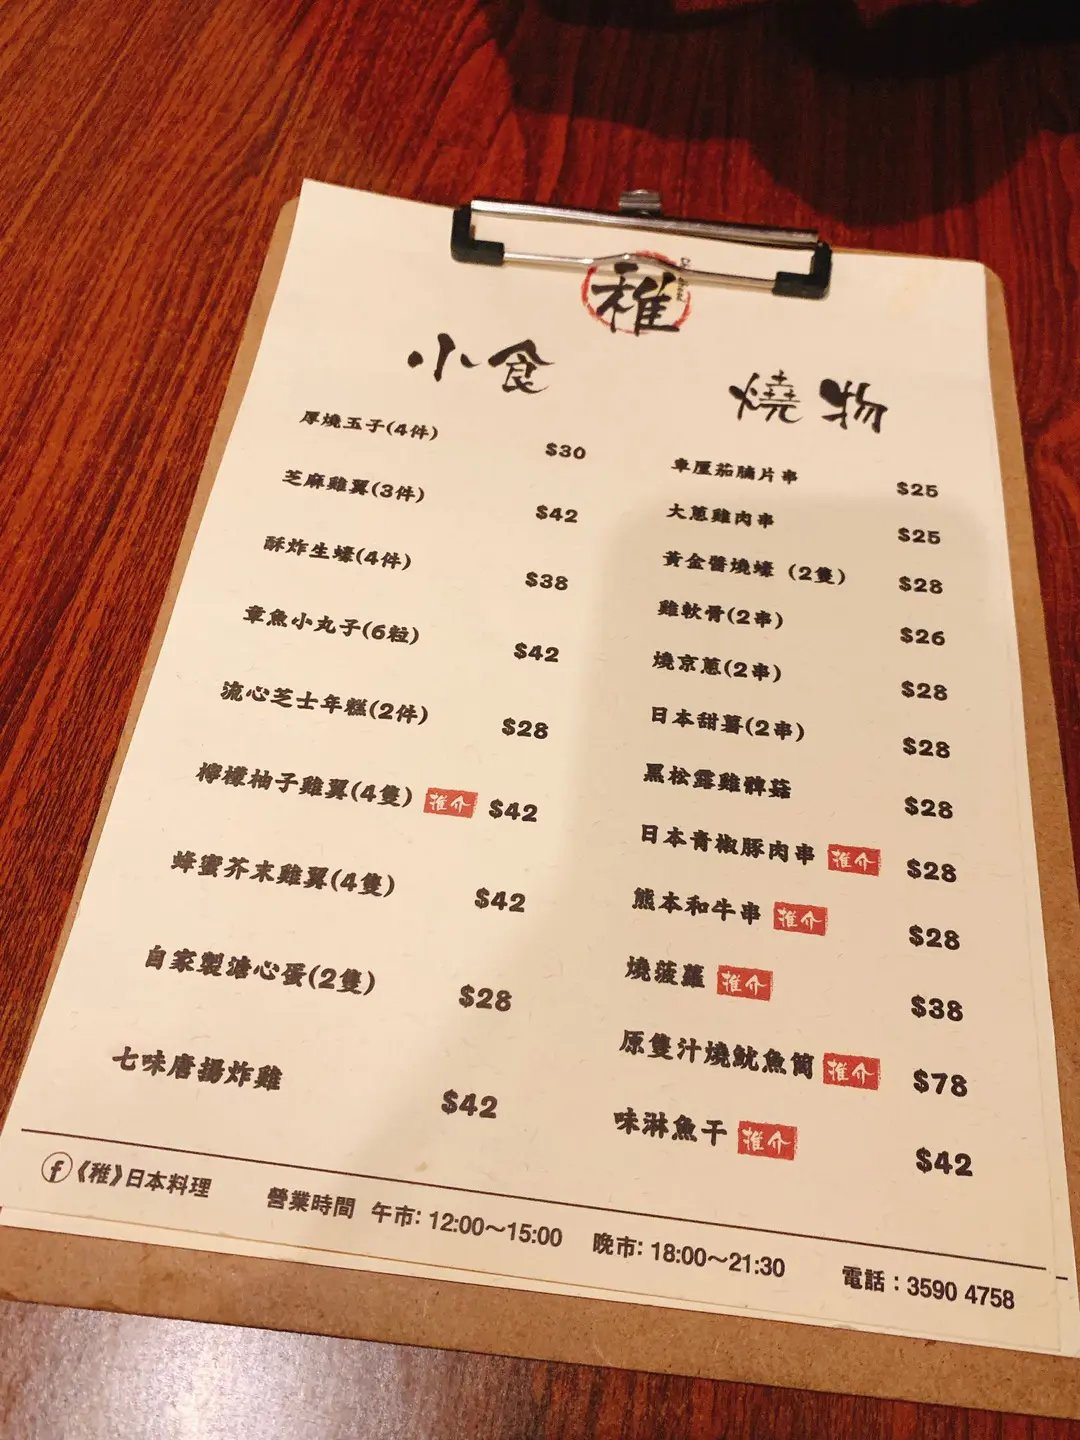 稚
小食
厚燒玉子(4件) $30
芝麻雞翼(3件) $42
酥炸生蠔(4件) $38
章魚小丸子(6粒) $42
流心芝士年糕(2件) $28
檸檬柚子雞翼(4隻) 推介 $42
蜂蜜芥末雞翼(4隻) $42
自家製溏心蛋(2隻) $28
七味唐揚炸雞 $42
燒物
車厘茄腩片串 $25
大蔥雞肉串 $25
黃金醬燒蠔 (2隻) $28
雞軟骨(2串) $26
燒京蔥(2串) $28
日本甜薯(2串) $28
黑松露雞髀菇 $28
日本青椒豚肉串 推介 $28
熊本和牛串 推介 $28
燒菠蘿 推介 $38
原隻汁燒魷魚筒 推介 $78
味淋魚干 推介 $42
f 《稚》日本料理 營業時間 午市: 12:00~15:00 晚市: 18:00~21:30 電話 : 3590 4758